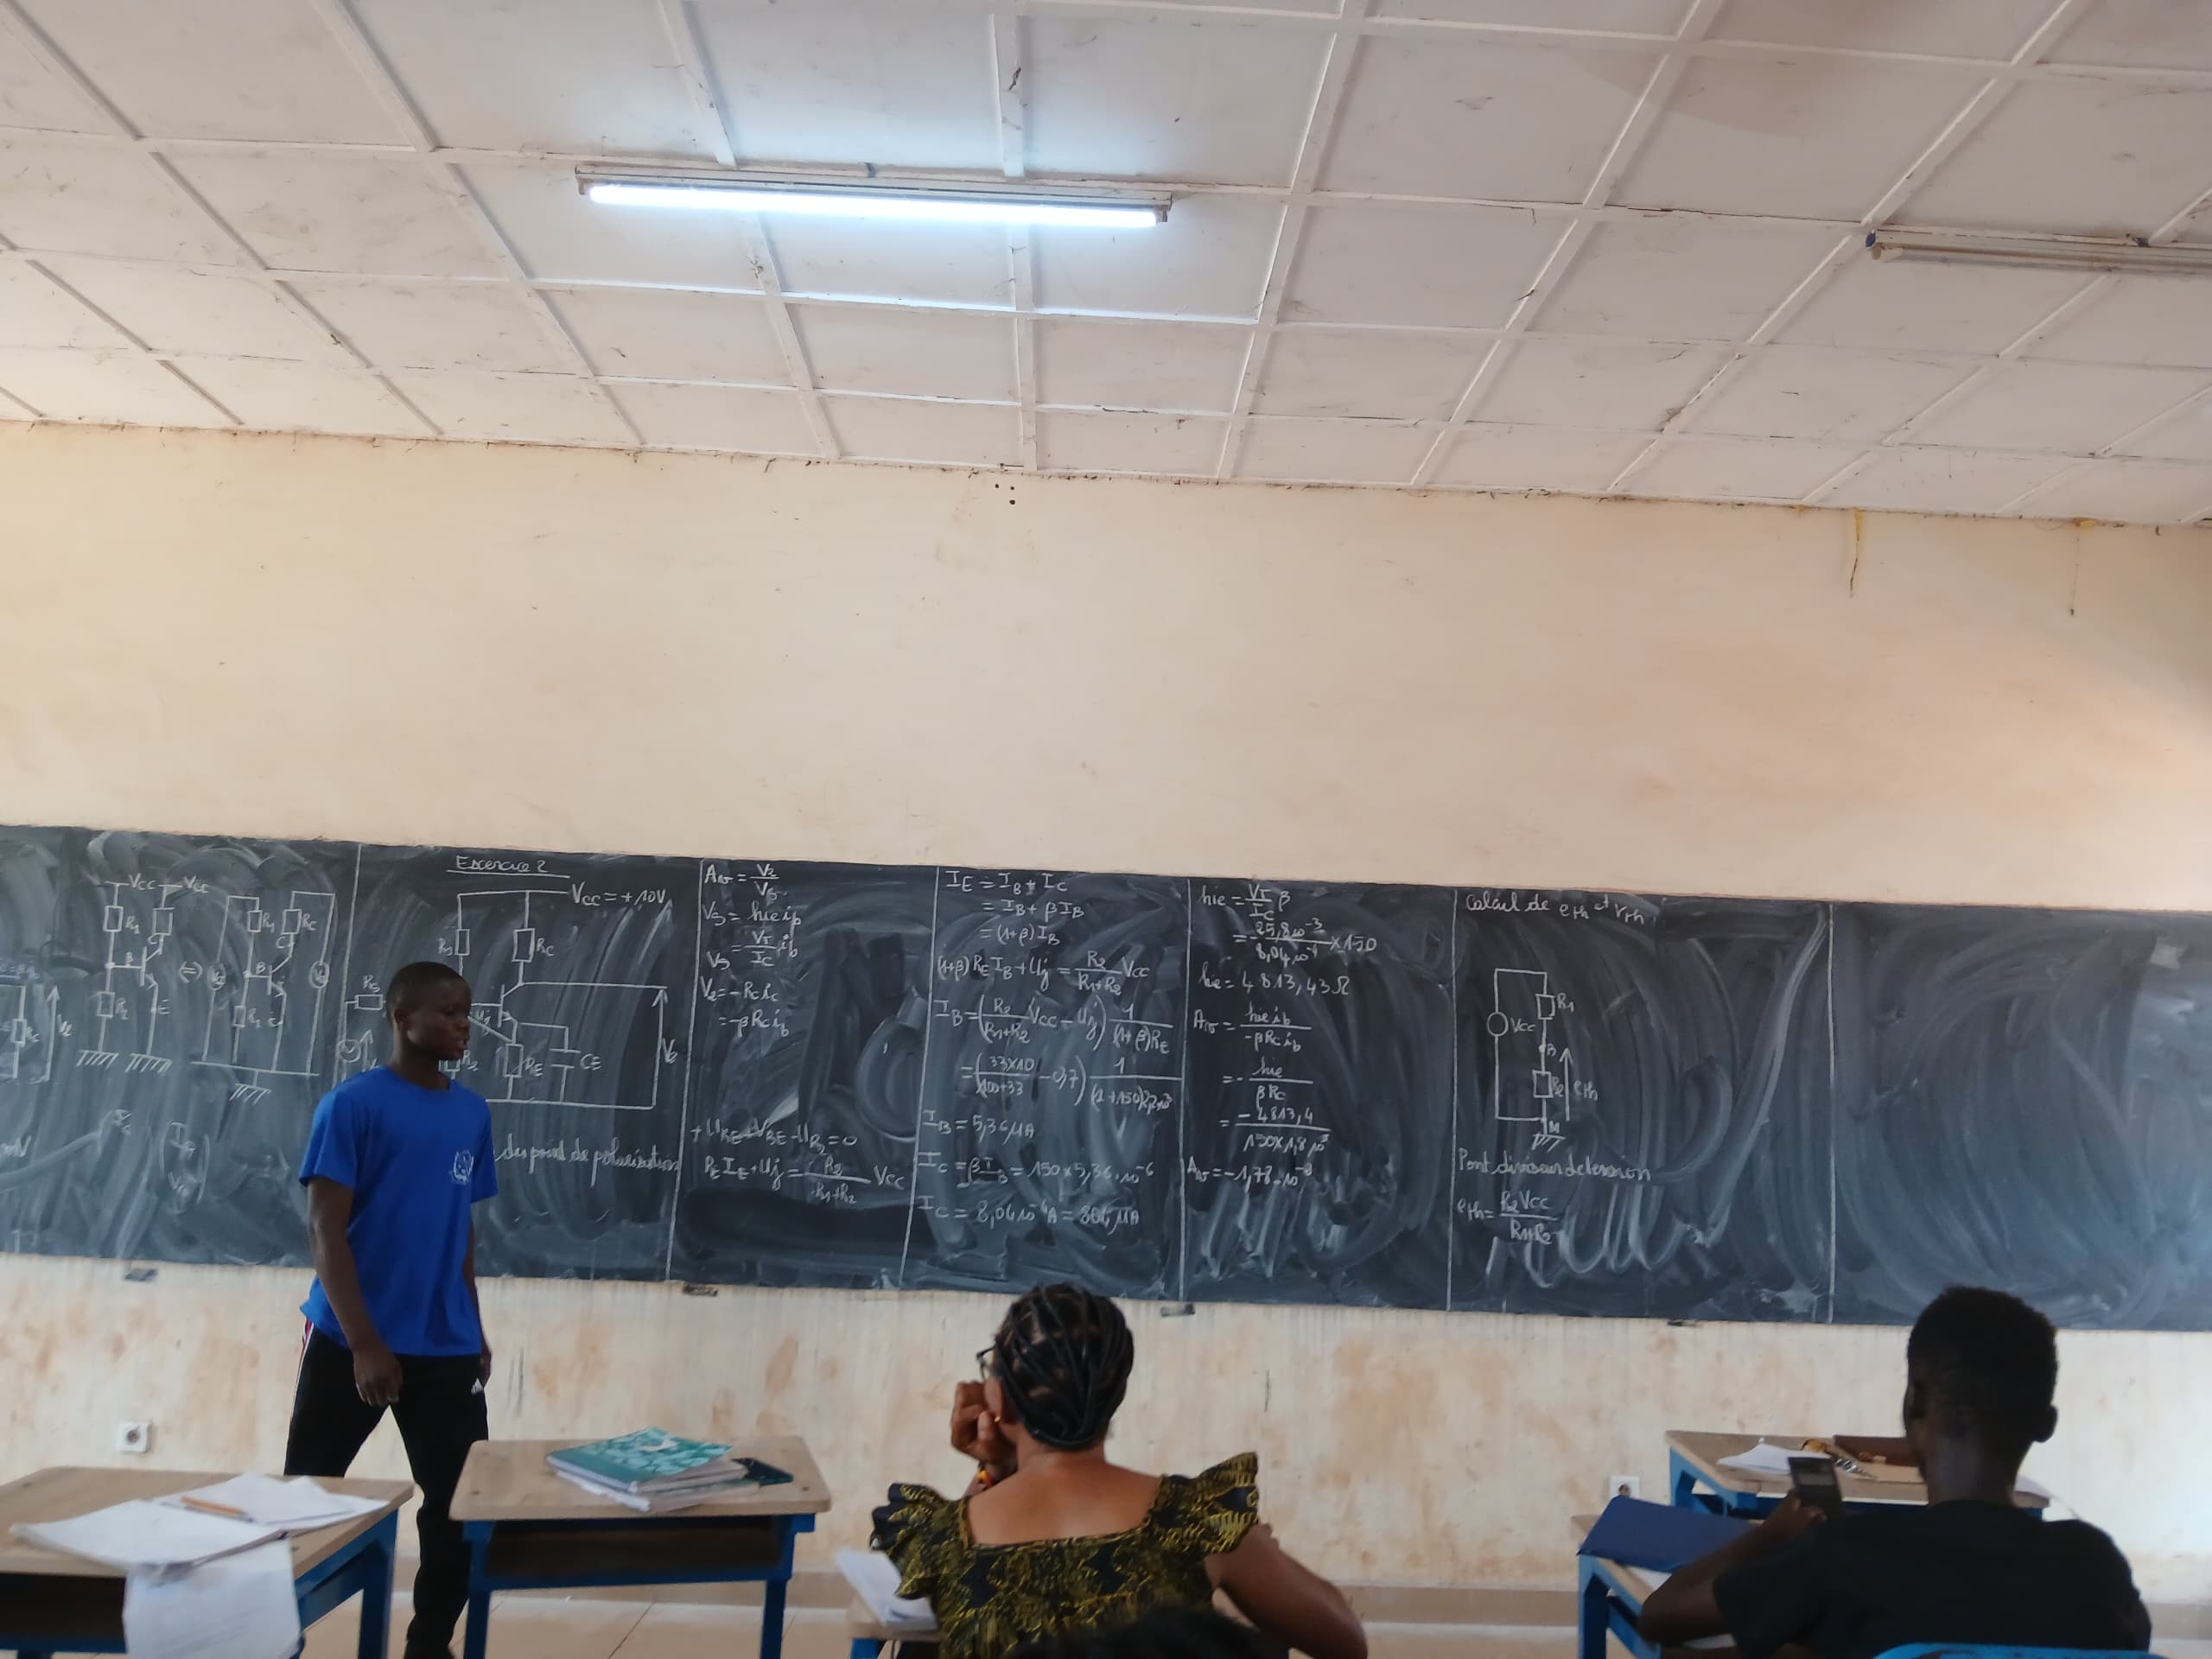 VCC
VCC
R1
C
B
R2
E
(=)
R1
RC
B
C
R2
E
RC
Exercice 2
VCC = +10V
RC
RS
RE
CE
R2
du point de polarisation
Av = V2/VS
VS = hie ib
VS = VT/IC ib
V2 = -RC ic
= -βRC ib
+URE + VBE - UR2 = 0
RE IE + Uj = (R2/R1+R2) VCC
IE = IB + IC
= IB + βIB
= (1+β)IB
(1+β) RE IB + Uj = R2/R1+R2 VCC
IB = (R2/R1+R2 VCC - Uj) 1/(1+β)RE
= (33×10/100+33 - 0,7) 1/(1+150)2,2.10³
IB = 5,36 μA
IC = βIB = 150 × 5,36.10⁻⁶
IC = 8,04.10⁻⁴A = 804 μA
hie = VT/IC β
= 25,8.10⁻³/8,04.10⁻⁴ × 150
hie = 4813,43Ω
Av = hie ib/-βRC ib
= - hie/βRC
= -4813,4/150×1,8.10³
Av = -1,78.10⁻²
Calcul de eth et rth
R1
VCC
B
R2
eth
M
Pont diviseur de tension
eth = R2 VCC/R1+R2